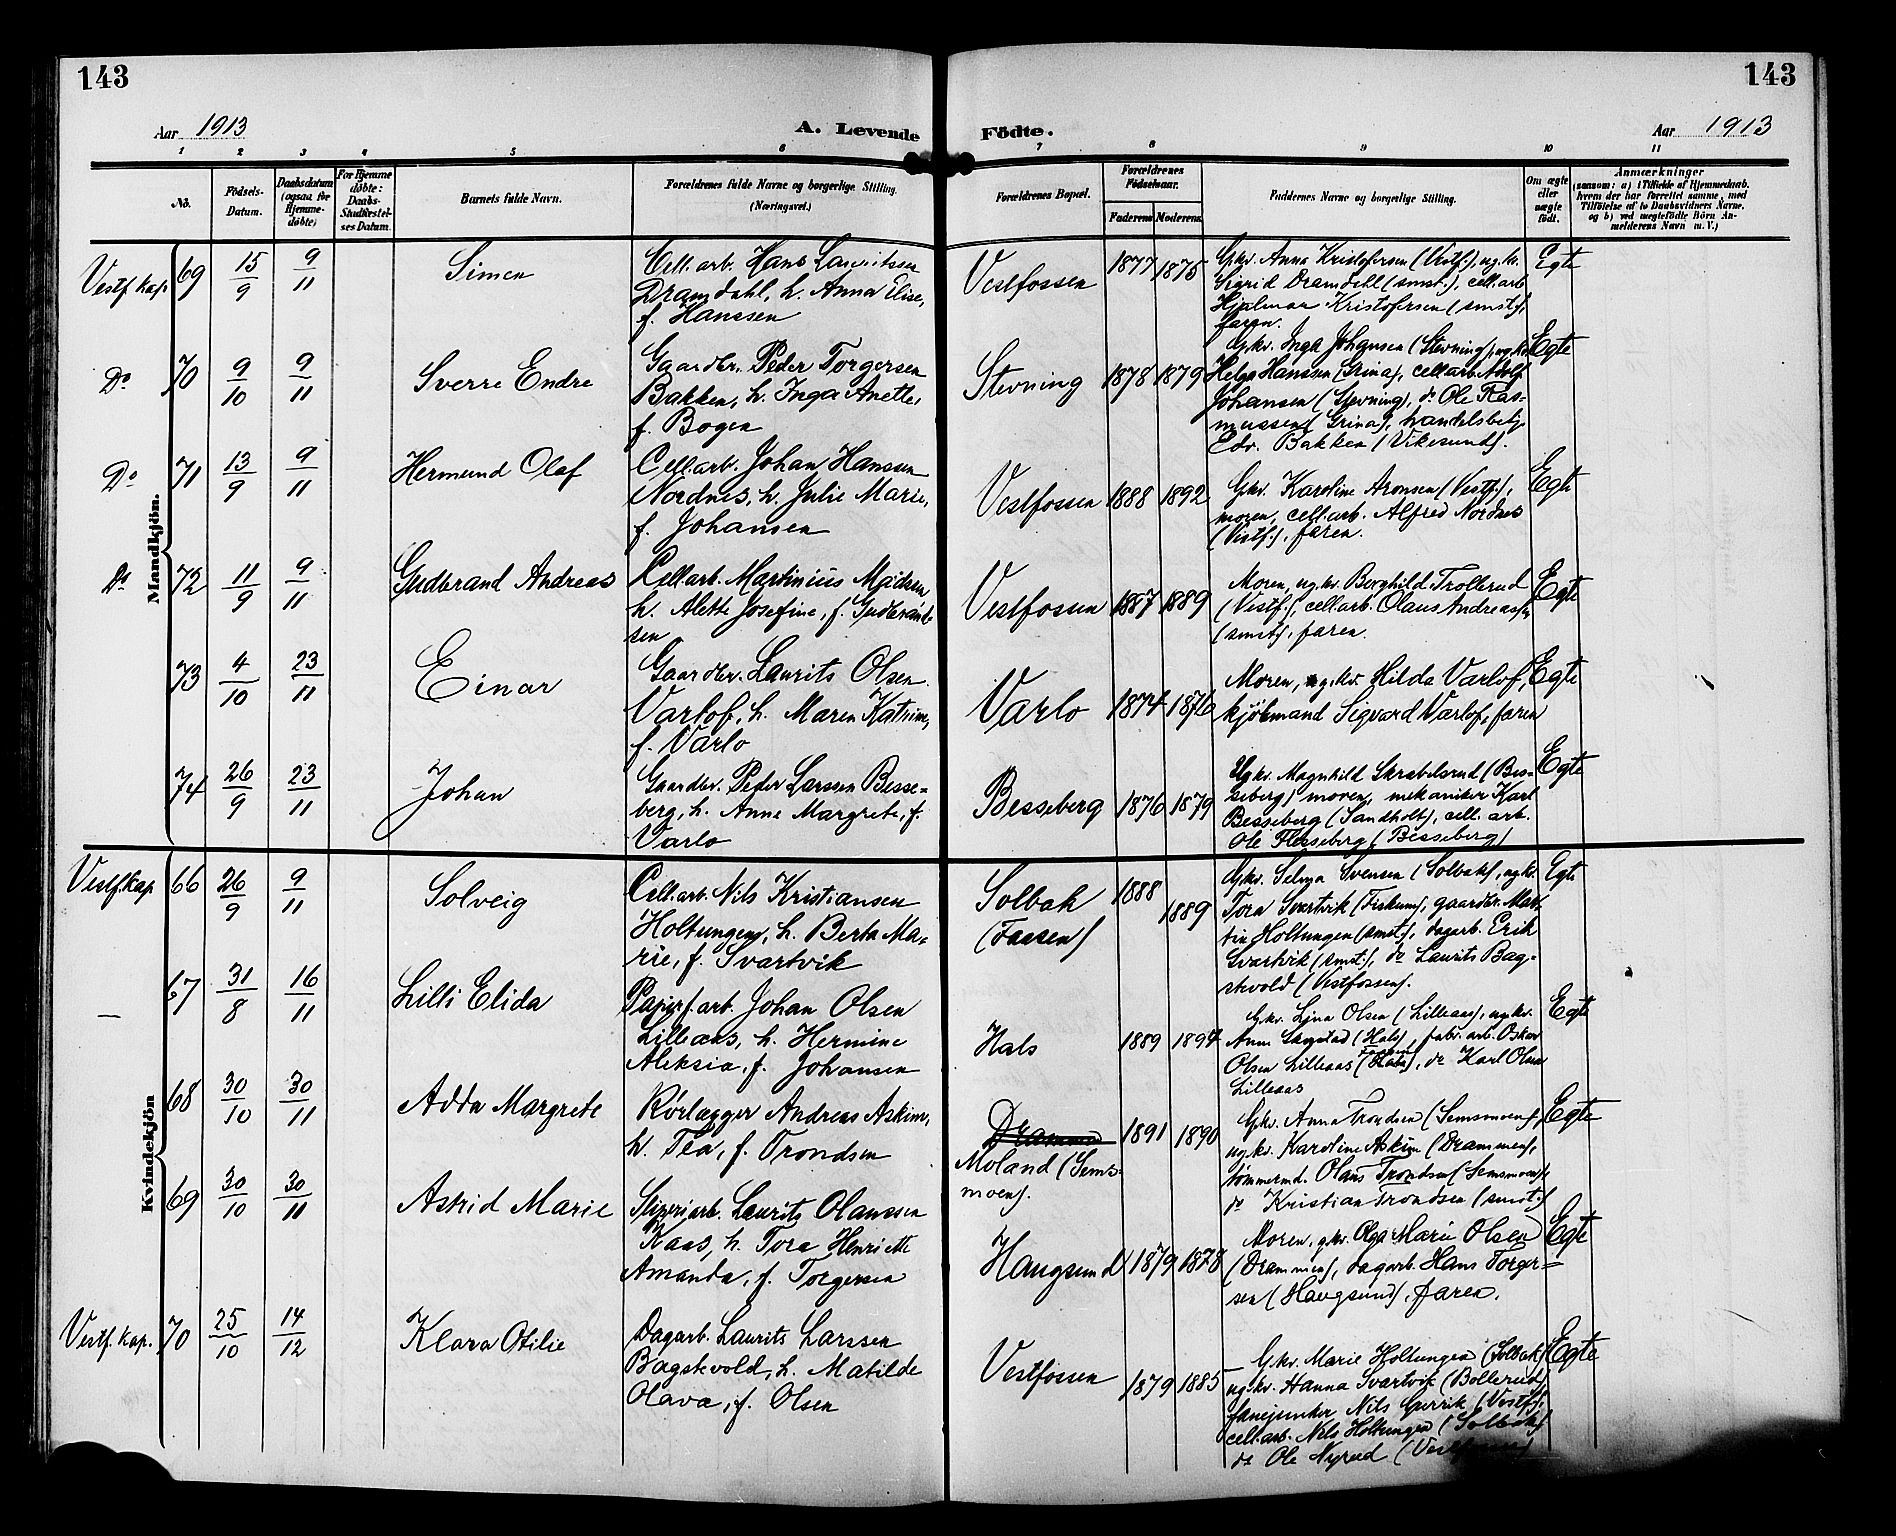 143
143
Aar 1913
A. Levende Födte.
Aar 1913
1 2 3 4 5 6 7 8 9 10 11
No.
Födsels-Datum.
Daabsdatum (ogsaa for Hjemmedöbte)
For Hjemmedöbte: Daabs-Stadfæstelses Datum.
Barnets fulde Navn.
Forældrenes fulde Navne og borgerlige Stilling. (Næringsvei.)
Forældrenes Bopæl.
Forældrenes Födselsaar.
Faderens Moderens
Faddernes Navne og borgerlige Stilling.
Om ægte eller uægte födt.
Anmærkninger
(saasom: a) i Tilfælde af Hjemmedaab, hvem der har forrettet samme, med Tilföielse af to Daabsvidners Navne, og b) ved uægtefödte Börn Anmelderens Navn m. V.)
Mandkjön.
Vestf. kap. 69 15/9 9/11 Simen
Cell.arb. Hans Lauritssen
Dramdahl, h. Anna Elise,
f. Hanssen
Vestfossen 1877 1875
Gkv. Anna Kristofersen (Vestf.), ugkv.
Sigrid Dramdahl (smst.), cell.arb
Hjalmar Kristofersen (smst),
faren.
Egte
Do 70 9/10 9/11 Sverre Endre
Gaardbr. Peder Torgersen
Bakken, h. Inga Anette,
f. Bogen
Stevning 1878 1879
Gkv. Inga Johansen (Stevning), ugkv.
Helga Hanssen (Grina), cell.arb. Adolf
Johansen (Stevning), do Ole Ras-
mussen (Grina), handelsbetj.
Edv. Bakken (Vikesund).
Egte
Do 71 13/9 9/11 Hermund Olaf
Cell.arb. Johan Hanssen
Nordnes, h. Julie Marie,
f. Johansen
Vestfossen 1888 1892
Gkv. Karoline Aronsen (Vestf.),
moren, cell.arb. Alfred Nordnes
(Vestf.), faren.
Egte
Do 72 11/9 9/11 Gudbrand Andreas
Cell.arb. Martinius Madsen
h. Alette Josefine, f. Gudbrand-
sen
Vestfossen 1887 1889
Moren, ugkv. Borghild Trollerud
(Vestf.), cell.arb. Olaus Andreassen
(smst), faren.
Egte
73 4/10 23/11 Einar
Gaardbr. Laurits Olsen
Varlof, h. Maren Katrine,
f. Varlo
Varlo 1874 1876
Moren, ugkv. Hilda Varlof,
kjöbmand Sigvard Varlof, faren
Egte
74 26/9 23/11 Johan
Gaardbr. Peder Larssen Besse-
berg, h. Anne Margrete, f.
Varlo
Besseberg 1876 1879
Ugkv. Magnhild Skrabelsrud (Bes-
seberg) moren, mekaniker Karl
Besseberg (Sandholt), cell. arb.
Ole Flesseberg (Besseberg)
Egte
Kvindekjön
Vestf. kap. 66 26/9 9/11 Solveig
Cell.arb. Nils Kristiansen
Holtungen, h. Berta Ma-
rie, f. Svartvik
Solbak
(Faasen)
1888 1889
Gkv. Selma Svensen (Solbak), ugkv.
Tora Svartvik (Fiskum), gaardbr. Mar-
tin Holtungen (smst), dagarb. Erik
Svartvik (smst.), do Laurits Bag-
stevold (Vestfossen).
Egte
— 67 31/8 16/11 Lilli Elida
Papirf.arb. Johan Olsen
Lilleaas, h. Hermine
Aleksia, f. Johansen
Hals 1889 1894
Gkv. Lina Olsen (Lilleaas), ugkv.
Anna (Hals), fabr. arb. Oskar
Olsen Lilleaas, do Karl Olsen
Lilleaas
Egte
68 30/10 30/11 Adda Margrete
Rörlægger Andreas Askim,
h. Tea, f. Trondsen
Drammen
Moland (Sems-
moen).
1891 1890
Gkv. Anna Trondsen (Semsmoen),
ugkv. Karoline Askim (Drammen),
tömmermd. Olaus Trondsen (Semsmoen),
do Kristian Trondsen (smst.)
Egte
69 30/10 30/11 Astrid Marie
Sliperiarb. Laurits Olaussen
Kaas, h. Tora Henriette
Amanda, f. Torgersen
Haugsund 1879 1878
Moren, gkv. Olga Marie Olsen
(Drammen), dagarb. Hans Torger-
sen (Haugsund), faren.
Egte
Vestf. kap. 70 25/10 14/12 Klara Otilie
Dagarb. Laurits Larssen
Bagstevold, h. Matilde
Olava, f. Olsen
Vestfossen 1879 1885
Gkv. Marie Holtungen (Solbak)
ugkv. Hanna Svartvik (Bollerud)
fanejunker Nils (Vestf.),
cell.arb. Nils Holtungen (Solbak)
do Ole Nyrud
Egte